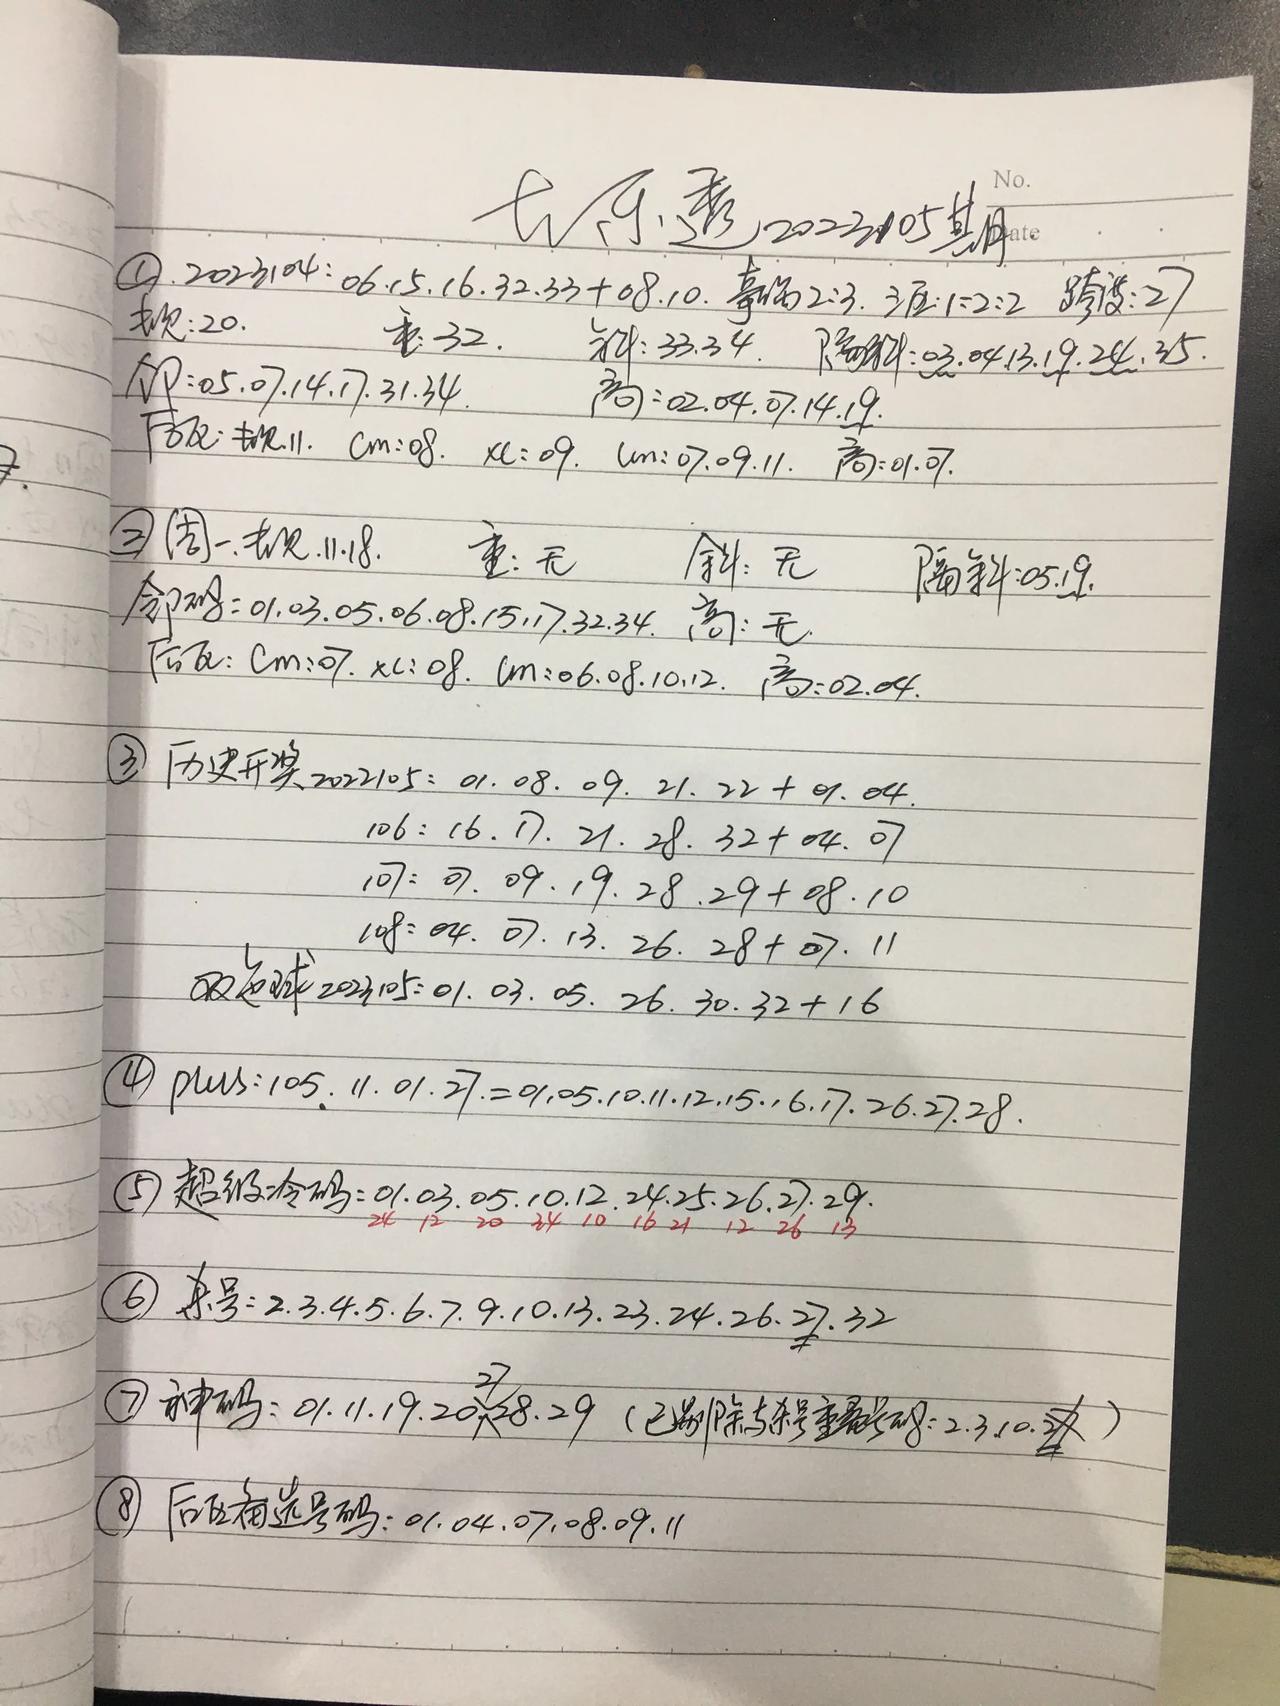 No.
Date
大乐透2023105期
① 2023104:06.15.16.32.33+08.10. 2:3. 三区:1:2:2 跨度:27
规:20. 重:32. 斜:33.34. 隔斜:03.04.13.19.24.35.
邻:05.07.14.17.31.34. 高:02.04.07.14.19.
后区: 规.11. Cm:08. XL:09. Lm:07.09.11. 高:01.07.
② 周一. 规.11.18. 重:无 斜:无 隔斜:05.19.
邻码:01.03.05.06.08.15.17.32.34. 高:无.
后区: Cm:07. XL:08. Lm:06.08.10.12. 高:02.04.
③ 历史开奖2022105: 01.08.09.21.22+01.04.
106: 16.17.21.28.32+04.07
107: 07.09.19.28.29+08.10
108: 04.07.13.26.28+07.11
双色球2023105:01.03.05.26.30.32+16
④ plus:105.11.01.27.=01.05.10.11.12.15.16.17.26.27.28.
⑤ 超级冷码:01.03.05.10.12.24.25.26.27.29.
24 12 20 34 10 16 21 12 26 13
⑥ 杀号:2.3.4.5.6.7.9.10.13.23.24.26.27.32
27
⑦ 神码:01.11.19.20.28.29 (已剔除与杀号重叠号码:2.3.10.)
⑧ 后区备选号码:01.04.07.08.09.11